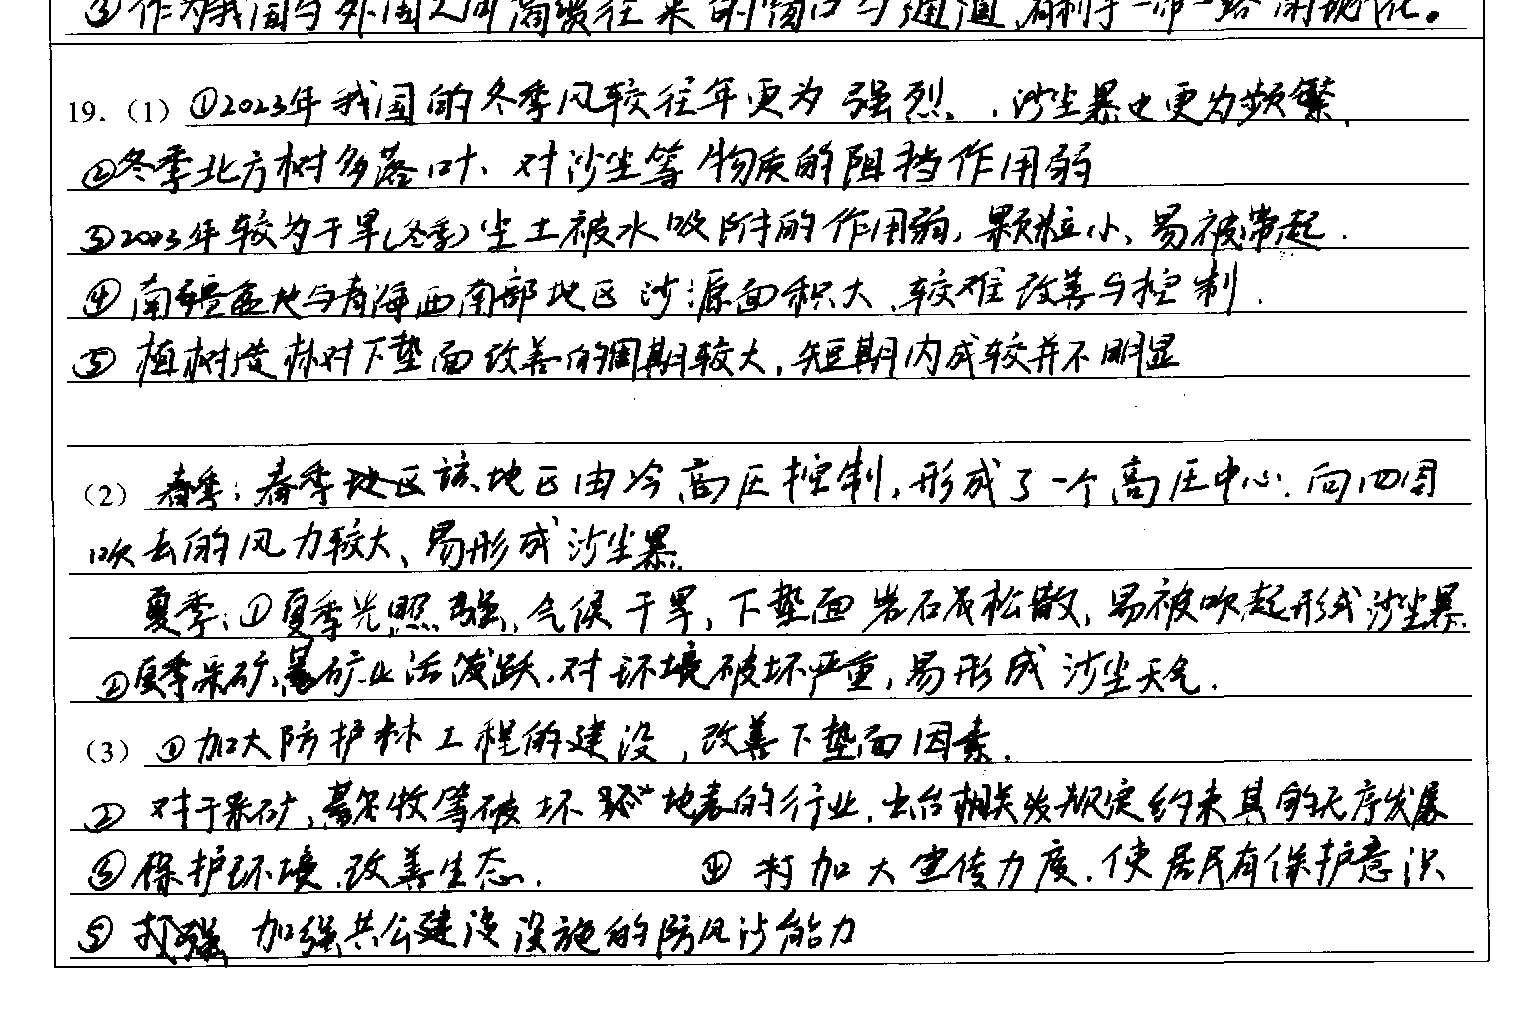 ③作为我国与外国之间商贸往来的窗口与通道,有利于一带一路
19.(1)①2023年我国的冬季风较往年更为强烈,沙尘暴也更为频繁.
②冬季北方树多落叶、对沙尘等物质的阻挡作用弱
③2023年较为干旱(冬季)尘土被水吸附的作用弱,颗粒小、易被带起.
④南疆盆地与青海西南部地区沙源面积大、较难改善与控制.
⑤植树造林对下垫面改善的周期较大,短期内成较并不明显
(2)春季:春季地区该地区由冷高压控制,形成了一个高压中心.向四周
吹去的风力较大、易形成沙尘暴.
夏季:①夏季光照强,气候干旱,下垫面岩石质松散,易被吹起形成沙尘暴.
②夏季采矿、矿业活泼跃.对环境破坏严重,易形成沙尘天气.
(3)①加大防护林工程的建设,改善下垫面因素.
②对于采矿、牧等破坏地表的行业.出台相关规定约束其的无序发展
③保护环境.改善生态.④加大宣传力度.使居民有保护意识
⑤加强共公建设设施的防风沙能力